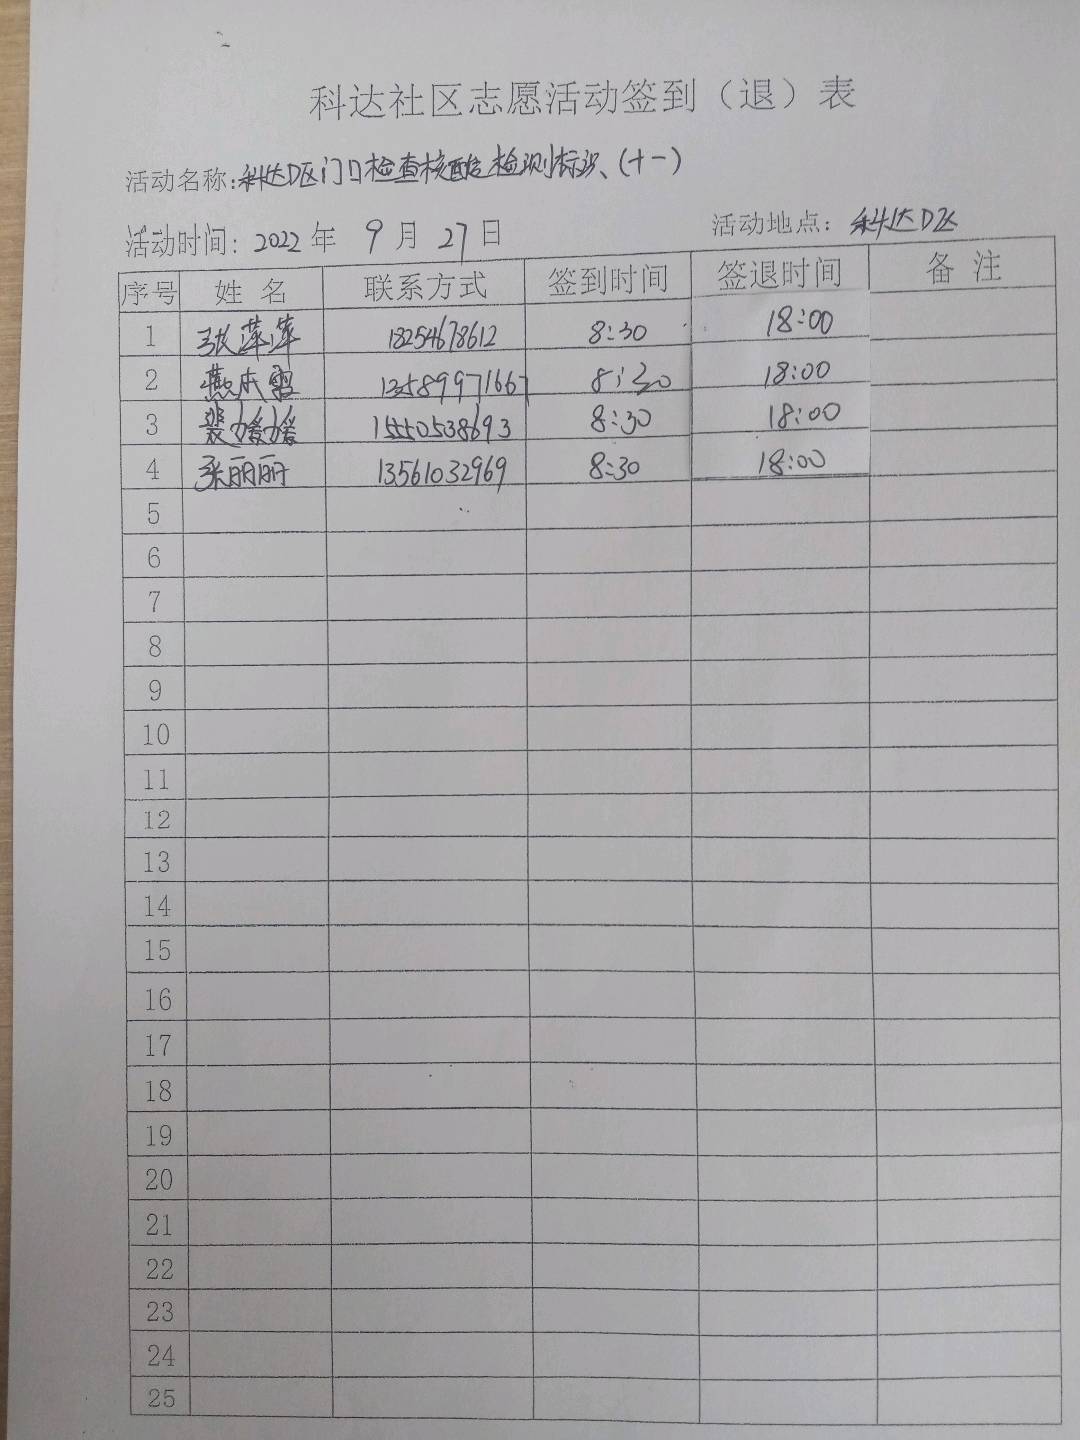 科达社区志愿活动签到（退）表
活动名称:科达D区门口检查核酸检测标识、(十一)
活动时间: 2022 年 9 月 27 日 活动地点: 科达D区
序号 姓 名 联系方式 签到时间 签退时间 备 注
1 张萍萍 18254678612 8:30 18:00
2 燕本雪 13589971667 8:30 18:00
3 裴媛媛 15550538693 8:30 18:00
4 张丽丽 13561032969 8:30 18:00
5
6
7
8
9
10
11
12
13
14
15
16
17
18
19
20
21
22
23
24
25